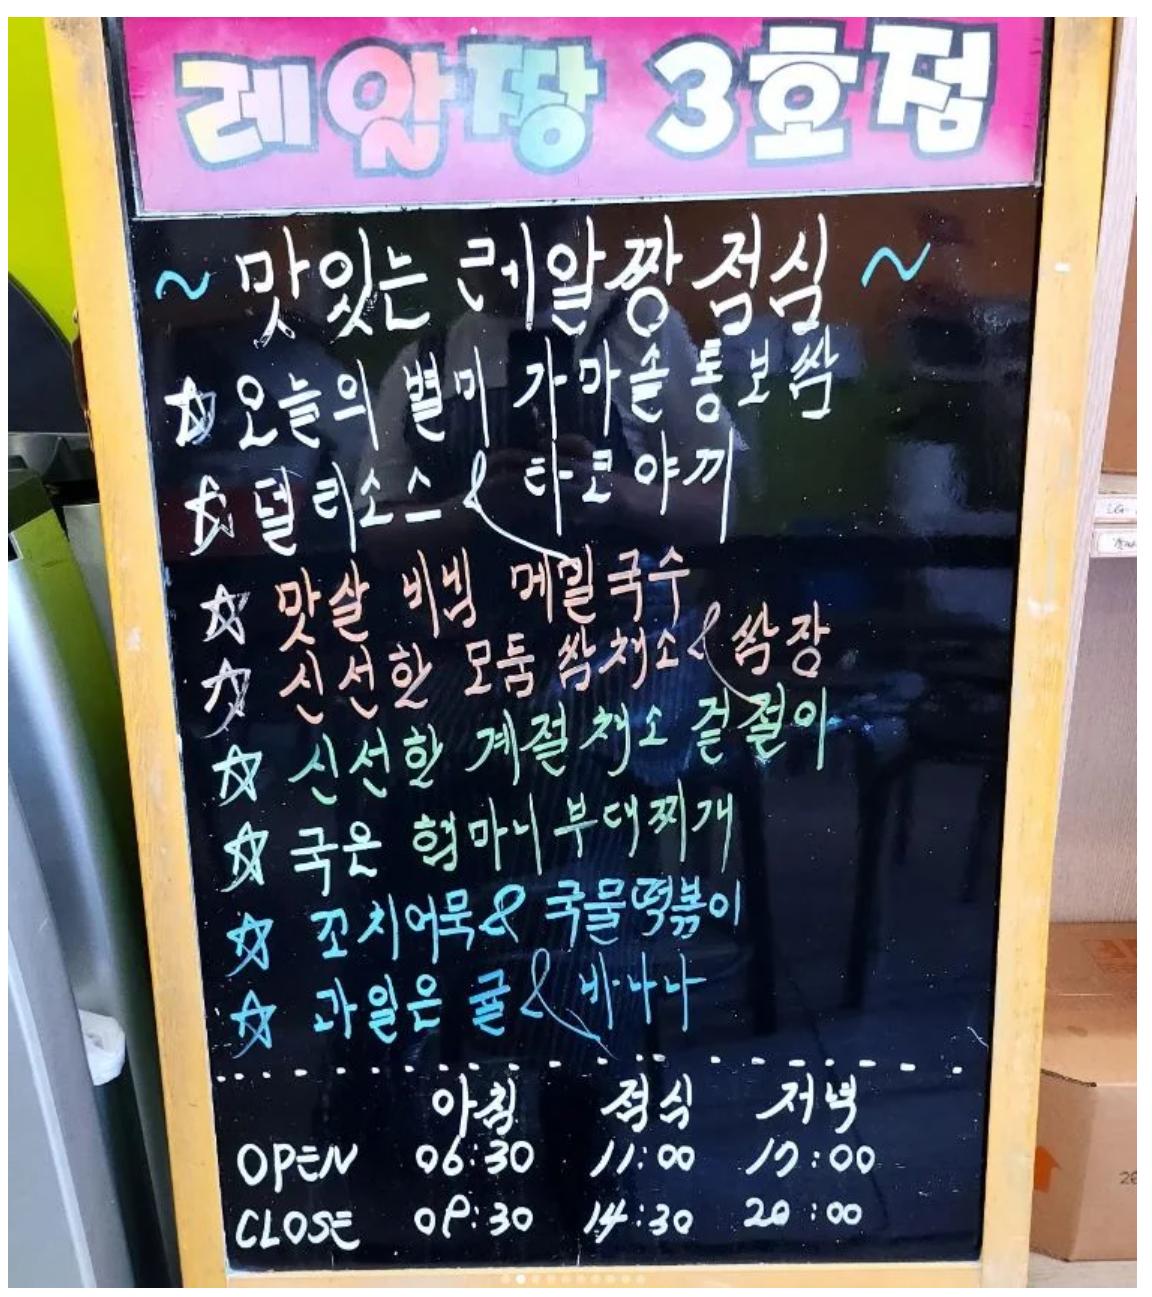 레알짱 3호점
~ 맛있는 레알짱 점심 ~
☆ 오늘의 별미 가마솥통보쌈
☆ 덜리소스 & 타코야끼
☆ 맛살 비빔 메밀국수
☆ 신선한 모둠 쌈채소 & 쌈장
☆ 신선한 계절채소 겉절이
☆ 국은 햄마니부대찌개
☆ 꼬치어묵 & 국물떡볶이
☆ 과일은 귤 & 바나나
아침 점심 저녁
OPEN 06:30 11:00 17:00
CLOSE 09:30 14:30 20:00